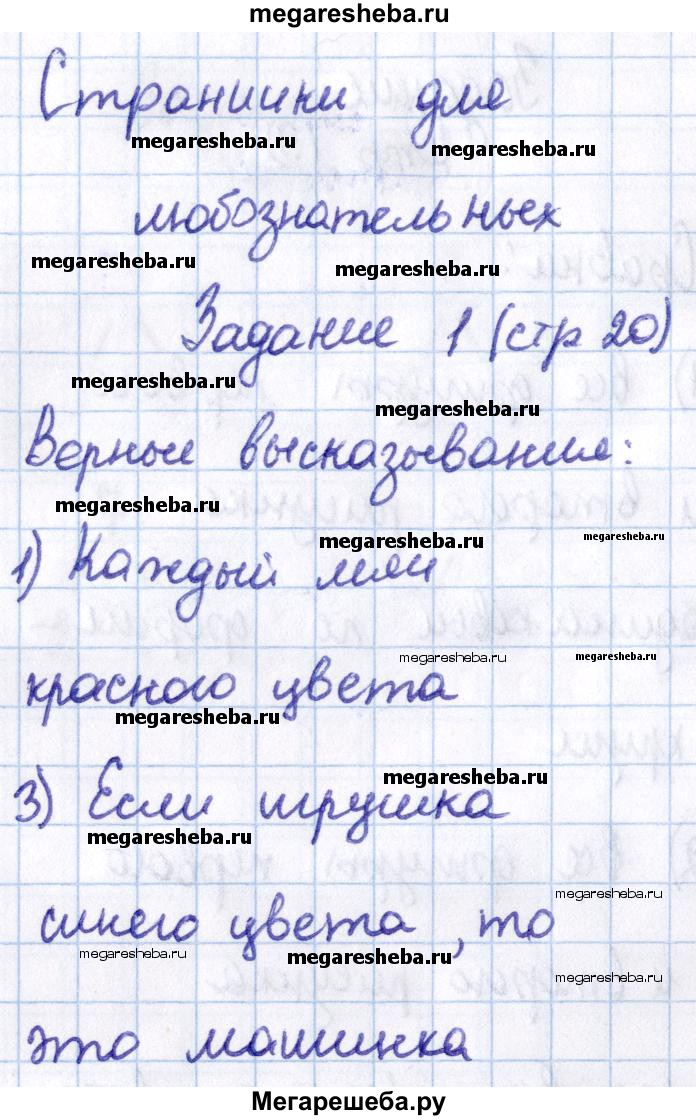 megaresheba.ru
Странички для
megaresheba.ru
megaresheba.ru
любознательных
megaresheba.ru
megaresheba.ru
Задание 1 (стр 20)
megaresheba.ru
megaresheba.ru
Верные высказывания:
megaresheba.ru
megaresheba.ru
megaresheba.ru
1) Каждый мяч
megaresheba.ru
megaresheba.ru
красного цвета
megaresheba.ru
megaresheba.ru
3) Если игрушка
megaresheba.ru
megaresheba.ru
синего цвета, то
megaresheba.ru
megaresheba.ru
megaresheba.ru
это машинка
Мегарешеба.ру